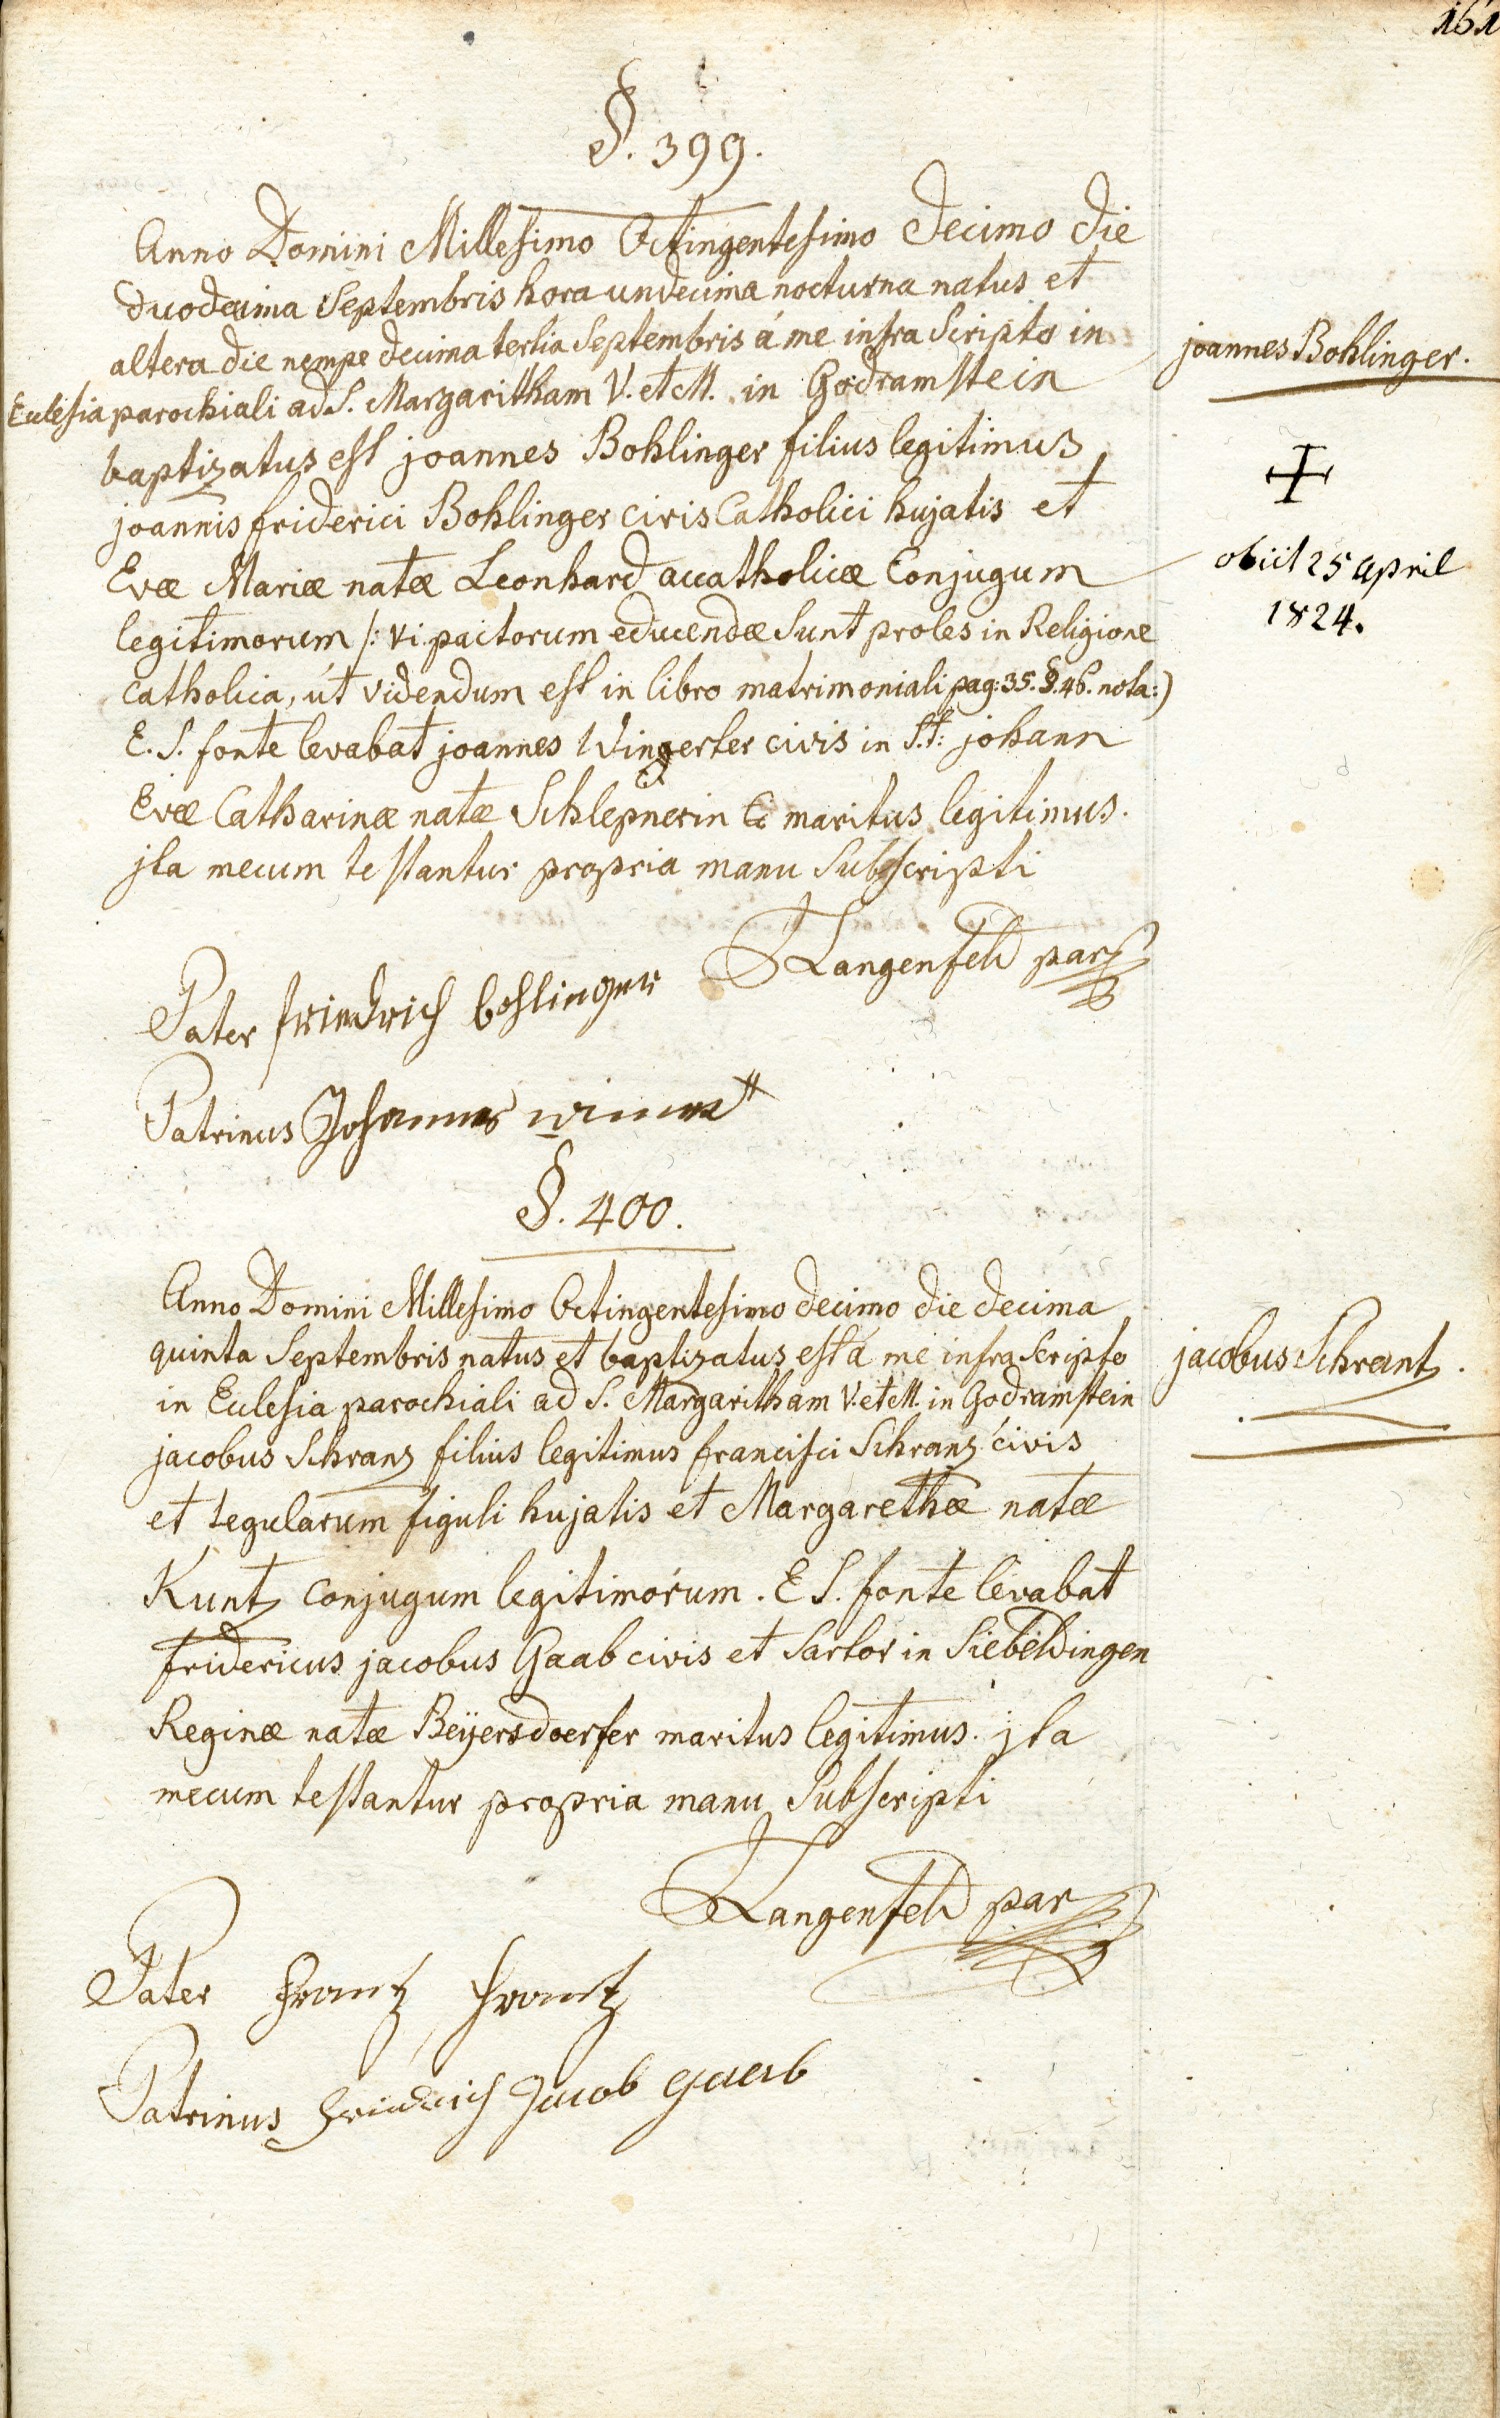 161
§. 399.
Anno Domini Millesimo Octingentesimo decimo die
duodecima Septembris hora undecima nocturna natus et
altera die nempe decima tertia Septembris á me infra Scripto in
Eclesia parochiali ad S. Margaritham V. et M. in Godramstein
baptizatus est joannes Bohlinger filius legitimus
joannis friderici Bohlinger civis Catholici hujatis et
Evæ Mariæ natæ Leonhard accatholicæ Conjugum
legitimorum /: vi pactorum educendæ Sunt proles in Religione
catholica, út videndum est in libro matrimoniali pag: 35. §. 46. nota:)
E. S. fonte levabat joannes Wingerter civis in S.t: johann
Evæ Catharinæ natæ Schlepnerin maritus legitimus.
jta mecum testantur propria manu Subscripti
Langenfeld par
Pater friedrich bohlinger
Patrinus Johannes
joannes Bohlinger.
obiit 25 april
1824.
§. 400.
Anno Domini Millesimo Octingentesimo decimo die decima
quinta Septembris natus et baptizatus est á me infra Scripto
in Eclesia parochiali ad S. Margaritham V. et M. in Godramstein
jacobus Schranz filius legitimus francisci Schranz civis
et tegularum figuli hujatis et Margarethæ natæ
Kuntz conjugum legitimorum. E S. fonte levabat
fridericus jacobus Gaab civis et Sartor in Siebeldingen
Reginæ natæ Beÿersdoerfer maritus legitimus. jta
mecum testantur propria manu Subscripti
Langenfeld par
Pater Frantz
Patrinus Friedrich Jacob gaab
jacobus Schrantz.